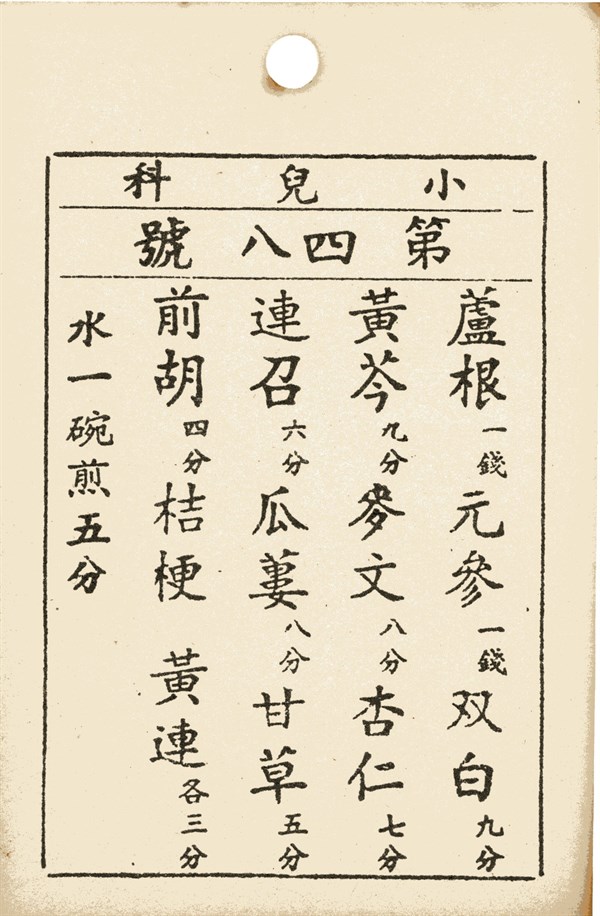 小兒科
第四八號
蘆根一錢元參一錢双白九分
黃芩九分麥文八分杏仁七分
連召六分瓜蔞八分甘草五分
前胡四分桔梗 黃連各三分
水一碗煎五分